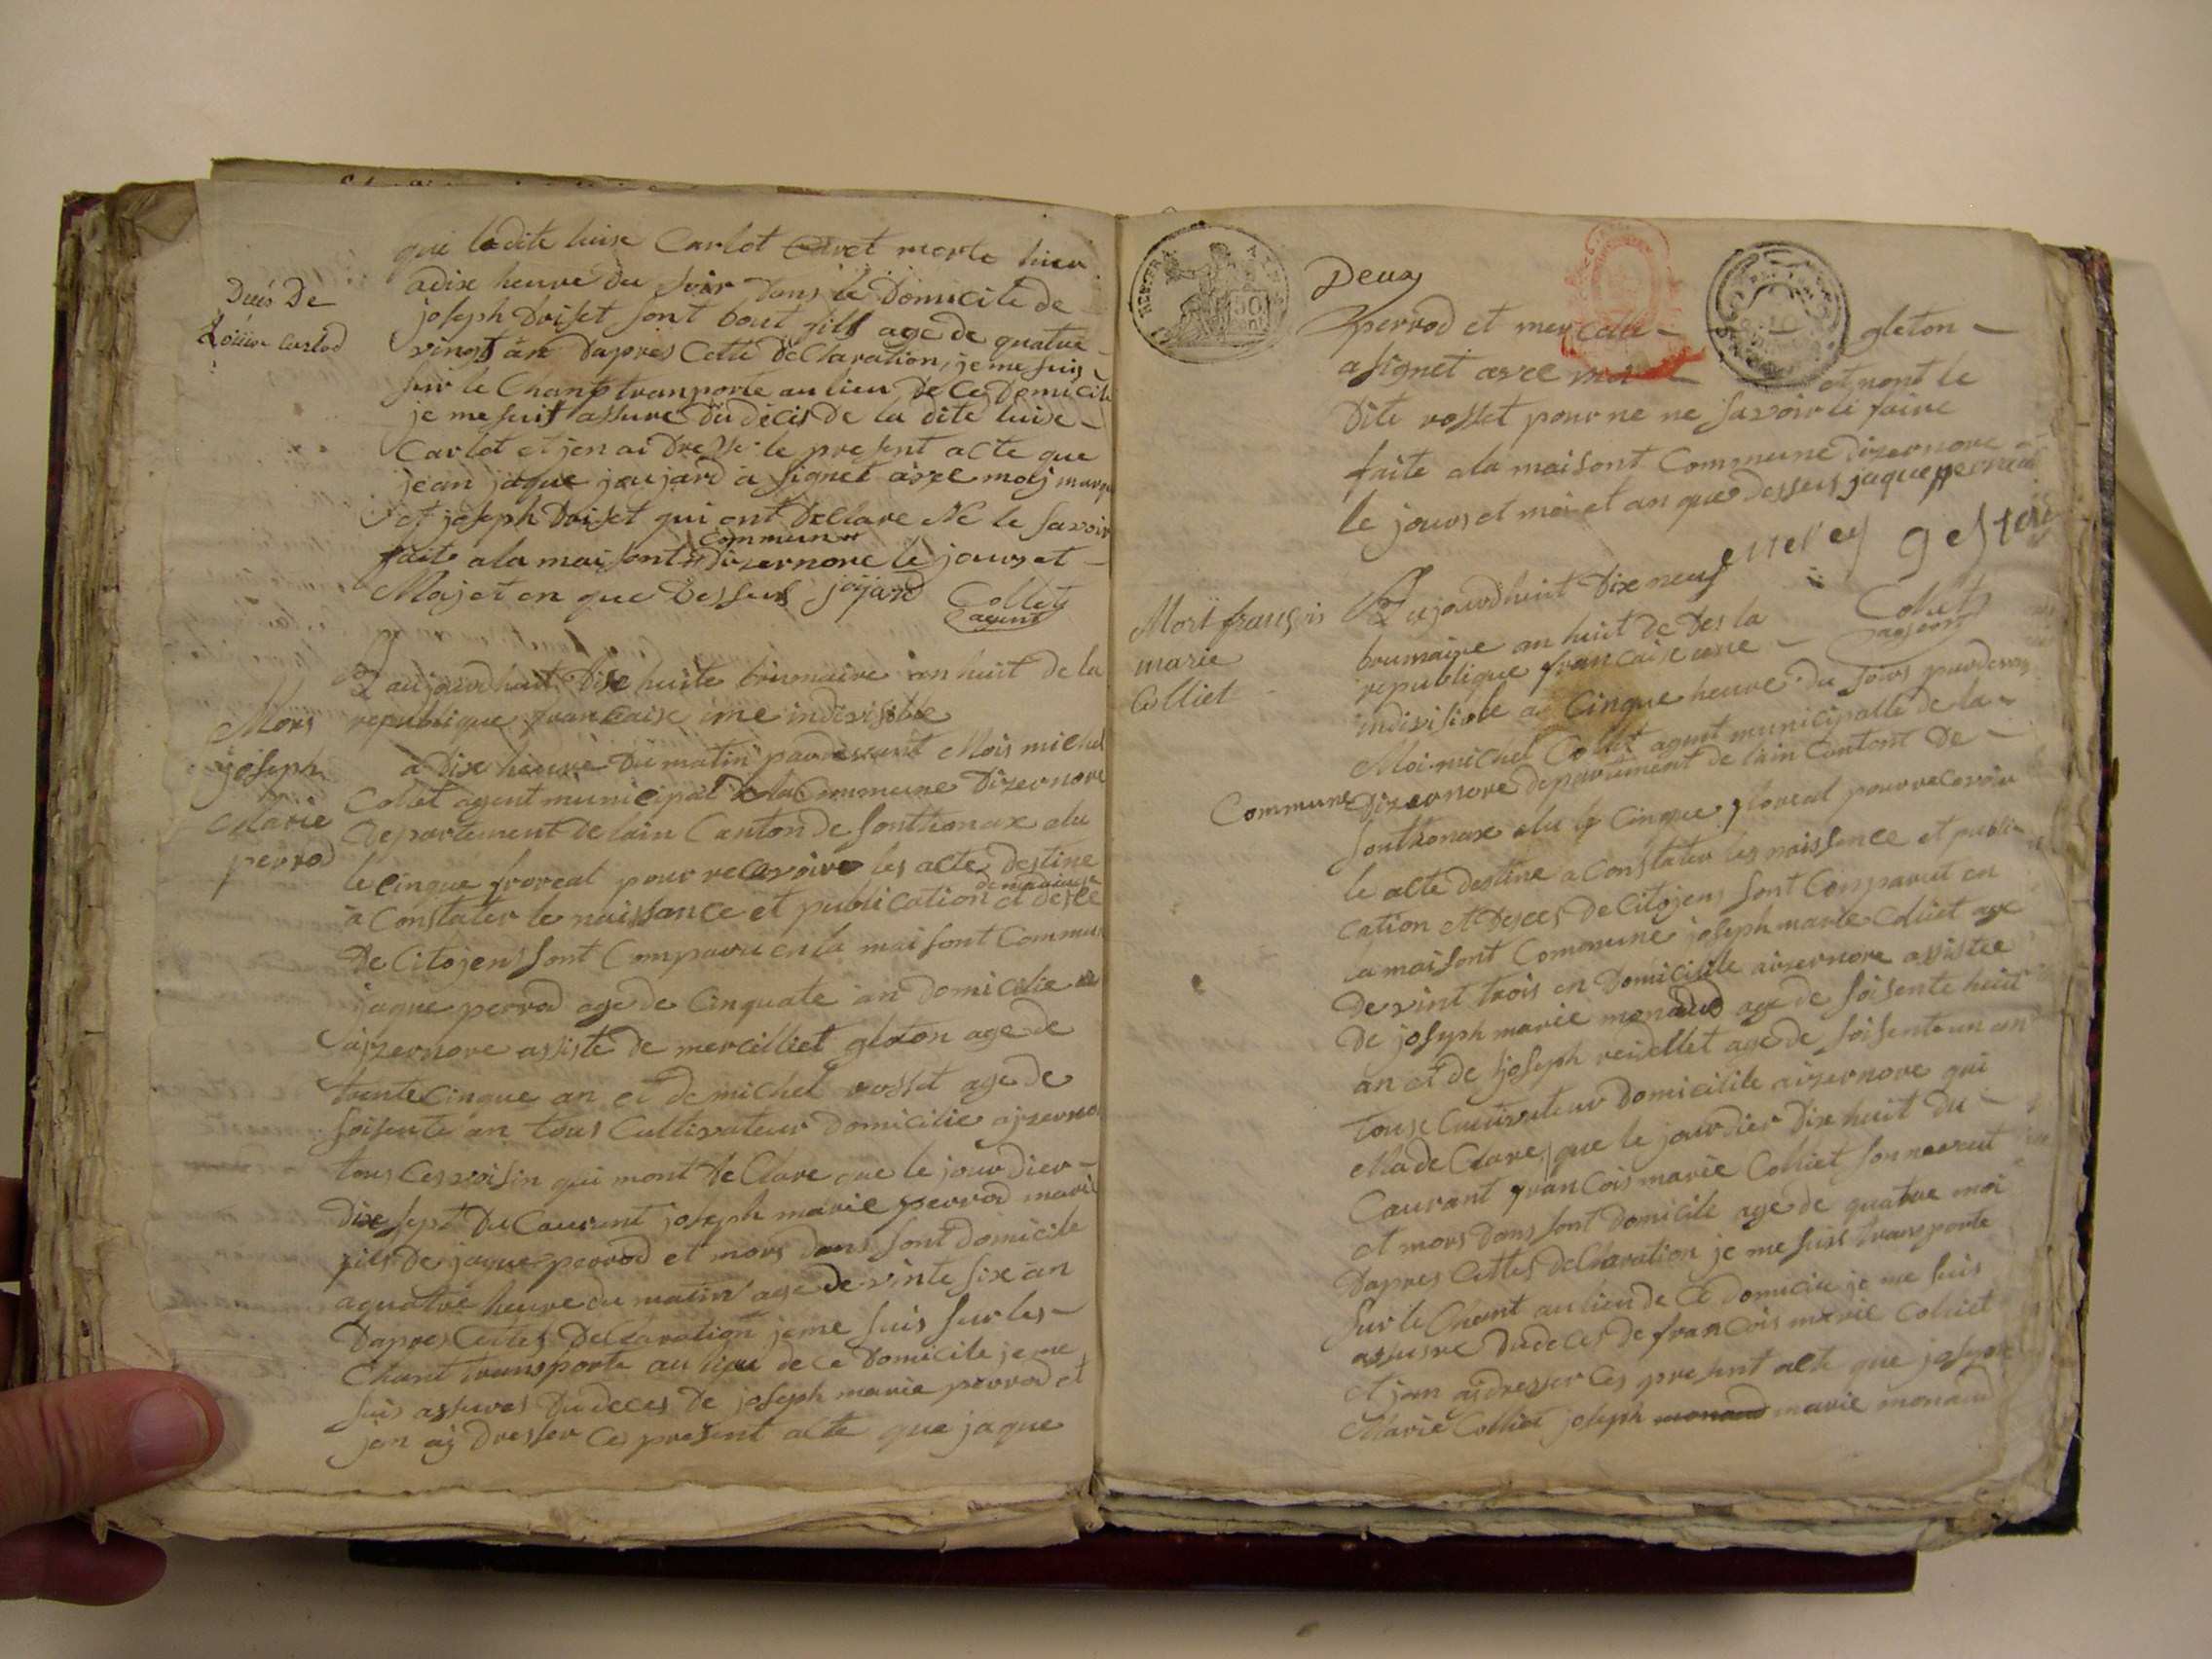 qui la dite luise Carlot etoet morte hier
adix heure du soir dans le Domicile de
Déces De
Loüise Carlod
joseph Driset sont bout fils age de quatre
vingt an Dapres Cette DeClaration, je me suis
sur le Champ tranporte au lieu de Ce Domicile
je me suis assure Du decis De la dite luise
Carlot et jen ai Dresse le present acte que
jean jaque joujard a signet avec moij
et joseph Driset qui ont DeClare Ne le savoir
commune
fait a la maisont Dizernore le jours et
Moij et en que Dessus joijard Collet
agent
aujourdhuit Dix huite brumaire an huit de la
republique francaise une indivisible
Mors
joseph
Marie
perrod
a Dix heure Du matin pardevant Mois michel
Collet agent municipal de la Commune Dizernore
Departement de lain Canton de Sonthonax elu
le Cinque floreal pour recevoire les acte destine
de mariage
a Constater le naissance et publication et desce
De Citojens sont Comparu en la maisont Commun
jaque perrod age de Cinquate an domicilie
aizernore assiste de mercilliet gleton age de
trente Cinque an et de michel rosset age de
soisente an tous Cultivateur Domicilie ajzerno
tous Ces voisin qui mont deClare que le jour dier
Dix sept Du Caurant joseph marie perrod
fils De jaque perrod et mors dans sont domicile
aquatre heure du matin age de vinte six an
Dapres Cettes DeClaration je me suis sur les
Chant transporte au lieu de Ce Domicile je me
suis assures Du deces De joseph marie perrod et
jen aij Dresser Ces present alte que jaque
Deux
perrod et mer gleton
asignet avec et nont le
Dite rosset pour ne ne savoir le faire
faite a la maisont Commune Dizernore
le jours et moi et an que dessus jaque perrud
gleton
Collet
agent
Mort françois
marie
Colliet
Aujourdhuit Dix neuf
brumaire an huit de des la
republique francaise une
indivisible a Cinque heure du soirs pardevant
Moi michel Collet agent municipalle de la
Commune Dizernore departement de lain Cantont De
Sonthonax elu le Cinque floreal pour recevoir
le alte destine a Constater les naissence et publi
cation et Deces De Citojens sont Comparut en
la maisont Commune joseph marie Colliet age
De vint trois en Domicilile aizernore assistee
De joseph marie monaud age de soisente huit
an et de joseph reidellet age de soisente un an
tous Cultivateur Domicilile aizernore qui
Ma de Clare que le jour dier Dix huit du
Caurant francois marie Colliet son
et mors dans sont domicile age de quatre moi
Dapres Cettes deClaration je me suis transporte
sur le Chant au lieu de Ce domicile je me suis
assusre du deces de francois marie Colliet
et jen aidresser Ces present alte que joseph
Marie Colliet joseph monaud marie monaud